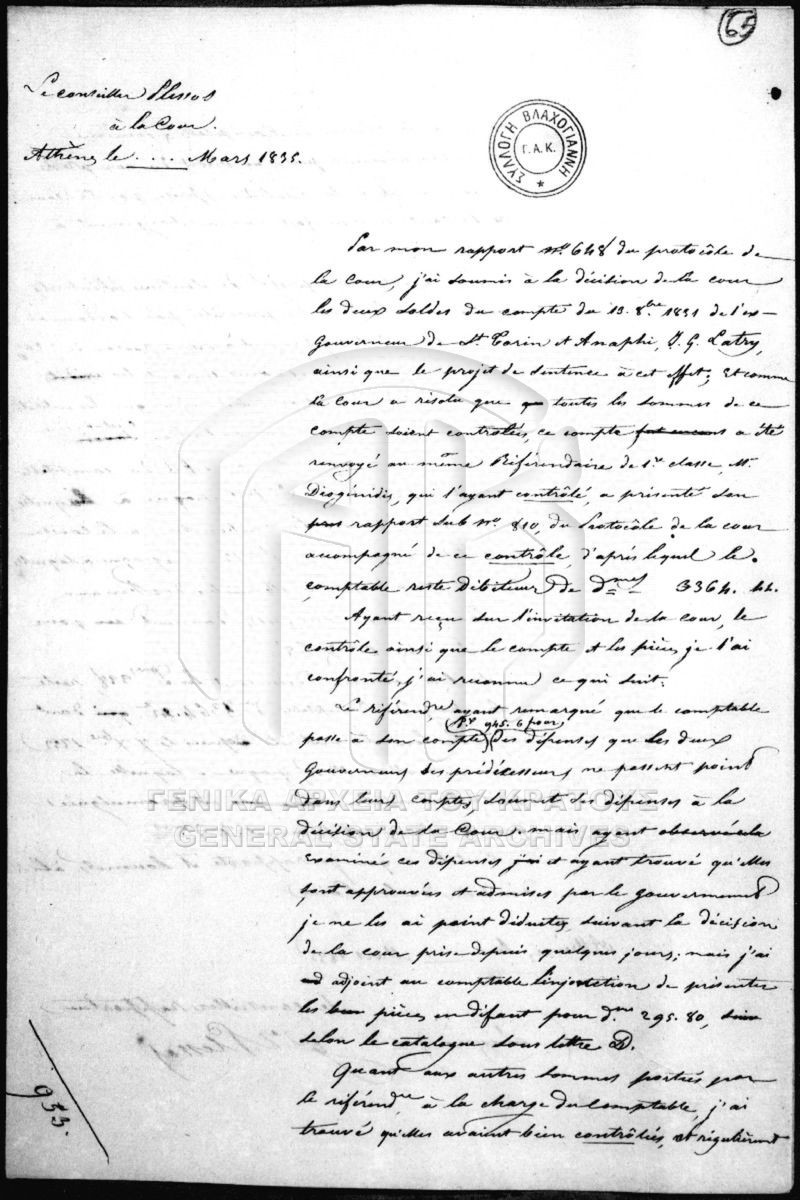 65
Le conseiller Plessos
à la Cour.
Athènes le .... Mars 1835.
ΣΥΛΛΟΓΗ ΒΛΑΧΟΓΙΑΝΝΗ
Γ.Α.Κ.
Par mon rapport nº 648 du protocôle de
la Cour, j'ai soumis à la décision de la cour
les deux soldes du compte du 13. 8bre 1831 de l'ex-
Gouverneur de St Torin et Anaphi, J. G. Latry,
ainsi que le projet de sentence à cet effet; Et comme
la Cour a résolu que toutes les sommes de ce
compte soient controlées, ce compte a été
renvoyé au même Référendaire de 1re classe, Mr
Diogénidis, qui l'ayant contrôlé, a présenté son
rapport sub nº 810, du Protocôle de la cour
accompagné de ce contrôle, d'après lequel le
comptable reste Débiteur de dmes 3364. 44.
Ayant reçu sur l'invitation de la cour, le
contrôle ainsi que le compte et les pièces, je l'ai
confronté, j'ai reconnu ce qui suit.
Le référendre ayant remarqué que le comptable
945. 6 pour
passe à son compte des dépenses que les deux
Gouverneurs ses prédécesseurs ne passent point
dans leurs comptes, soumet ses dépenses à la
décision de la Cour. mais ayant observé cela
examiné ces dépenses et ayant trouvé qu'elles
sont approuvées et admises par le gouvernement
je ne les ai point déduites, suivant la décision
de la cour prise depuis quelques jours; mais j'ai
adjoint au comptable l'injonction de présenter
les pièces en défaut pour dmes 295. 80,
selon le catalogue sous lettre D.
Quant aux autres sommes portées par
le référendre à la charge du Comptable, j'ai
trouvé qu'elles avaient bien contrôlées, et régulièrement
933.
ΓΕΝΙΚΑ ΑΡΧΕΙΑ ΤΟΥ ΚΡΑΤΟΥΣ
GENERAL STATE ARCHIVES